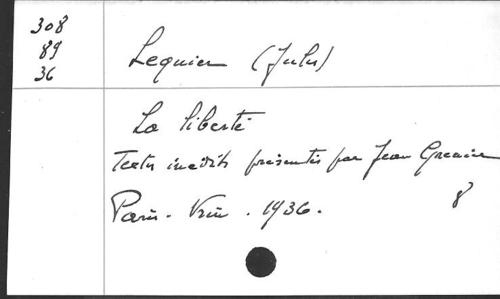 308
89
36
Lequier (Jules)
La liberté
Textes inédits présentés par Jean Grenier
Paris. Vrin. 1936.
8